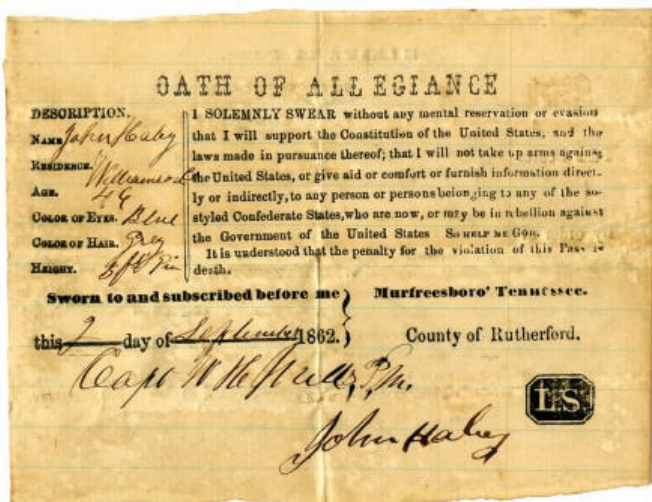 OATH OF ALLEGIANCE
DESCRIPTION.
NAME John Haley
RESIDENCE. Williamson Co
AGE. 46
COLOR OF EYES. Blue
COLOR OF HAIR. Grey
HEIGHT. 5 ft
I SOLEMNLY SWEAR without any mental reservation or evasion
that I will support the Constitution of the United States, and the
laws made in pursuance thereof; that I will not take up arms against
the United States, or give aid or comfort or furnish information direct-
ly or indirectly, to any person or persons belonging to any of the so-
styled Confederate States, who are now, or may be in rebellion against
the Government of the United States SO HELP ME GOD.
It is understood that the penalty for the violation of this Pass is
death.
Sworn to and subscribed before me
this 2 day of September 1862.
Murfreesboro' Tennessee.
County of Rutherford.
Capt W H P.M.
LS
John Haley